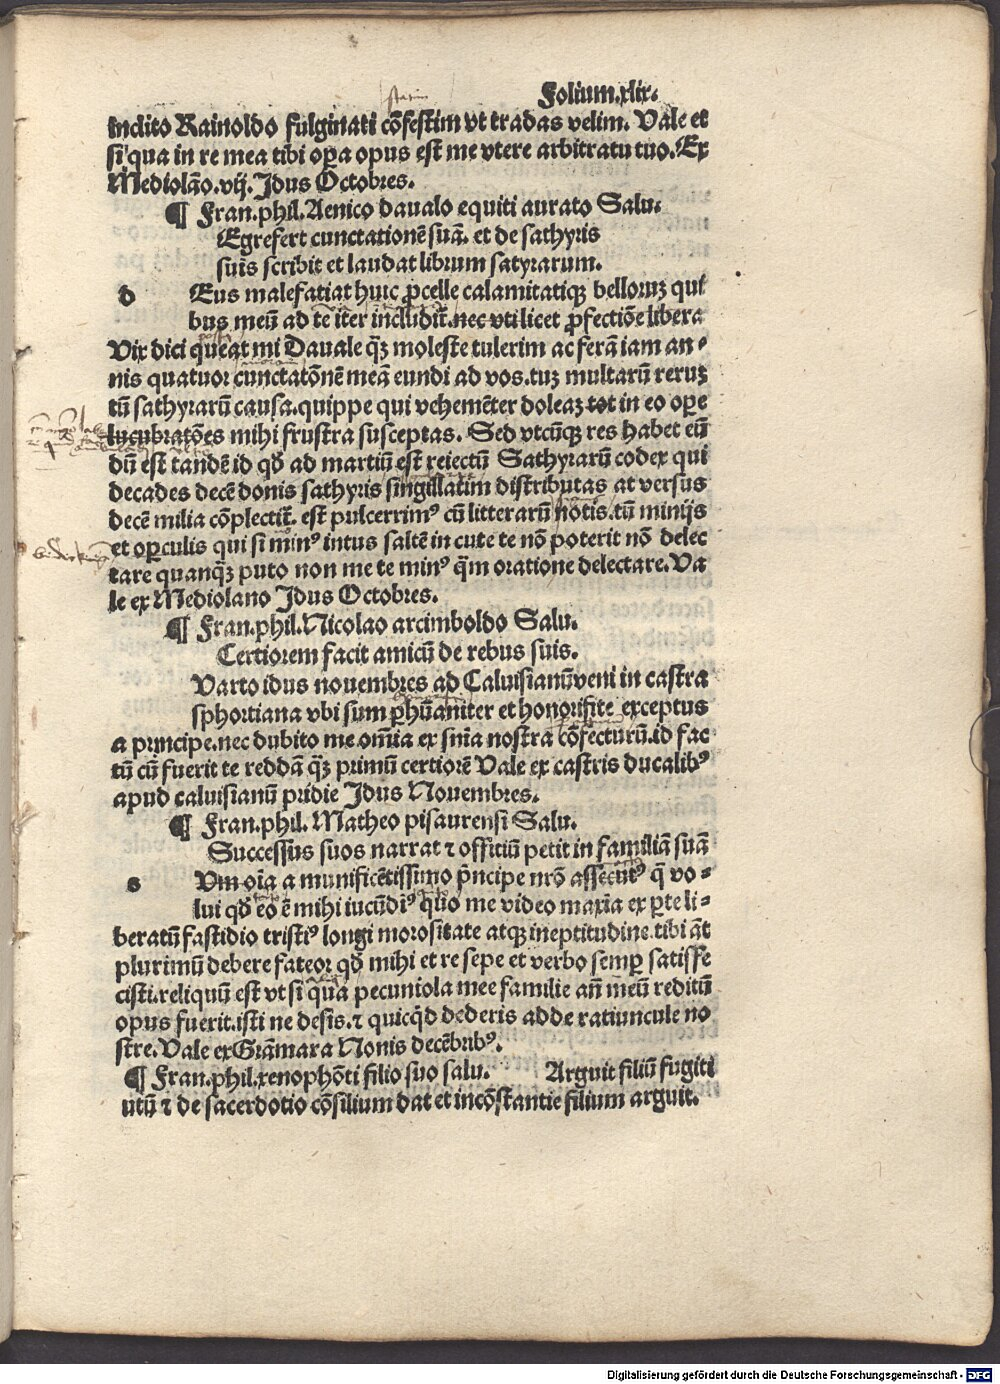 Folium.xlix.
statim
inclito Rainoldo fulginati cõfestim vt tradas velim. Vale et
si qua in re mea tibi oꝑa opus est me vtere arbitratu tuo. Ex
Mediolão. vij. Idus Octobres.
¶ Fran. phil. Aenico daualo equiti aurato Salu.
Egrefert cunctationẽ suã. et de sathyris
suis scribit et laudat librum satyrarum.
d Eus malefatiat huic ꝓcelle calamitatiqꝫ belloruꝫ qui
bus meũ ad te iter includit̃. nec vtilicet ꝓfectiõe libera
Vix dici queat mi Dauale qꝫ̃ moleste tulerim ac ferã iam an⸗
nis quatuor cunctatõnẽ meã eundi ad vos. tuꝫ multarũ reruꝫ
tũ sathyrarũ causa. quippe qui vehemẽter doleaꝫ tot in eo oꝑe
lucubratões mihi frustra susceptas. Sed vtcũqꝫ res habet eũ
dũ est tandẽ id qđ ad martiũ est reiectũ Sathyrarũ codex qui
decades decẽ donis sathyris singillatim distributas at versus
decẽ milia cõplectit̃. est pulcerrimꝰ cũ litterarũ notis. tũ minijs
et oꝑculis qui si minꝰ intus saltẽ in cute te nõ poterit nõ delec
tare quanqꝫ̃ puto non me te minꝰ q̃m oratione delectare. Va
le ex Mediolano Idus Octobres.
¶ Fran. phil. Nicolao arcimboldo Salu.
Certiorem facit amicũ de rebus suis.
Varto idus nouembres ad Caluisianũ veni in castra
sphortiana vbi sum ꝑhũaniter et honorifite exceptus
a principe. nec dubito me om̃ia ex sñia nostra cõfecturũ. id fac
tũ cũ fuerit te reddã qꝫ̃ primũ certiorẽ Vale ex castris ducalibꝰ
apud caluisianũ pridie Idus Nouembres.
¶ Fran. phil. Matheo pisaurensi Salu.
Successus suos narrat ⁊ offitiũ petit in familiã suã
s Vm oĩa a munificẽtissimo p̃ncipe nr̃o assecutꝰ q̃ vo⸗
lui qđ eo ẽ mihi iucũdiꝰ quo me video maxĩa ex ꝑte li⸗
beratũ fastidio tristiꝰ longi morositate atqꝫ ineptitudine. tibi ãt
plurimũ debere fateor qđ mihi et re sepe et verbo semꝑ satisfe
cisti. reliquũ est vt si qua pecuniola mee familie añ meũ reditũ
opus fuerit. isti ne desis. ⁊ quicqđ dederis adde ratiuncule no
stre. Vale ex Grãmara Nonis decẽbribꝰ.
¶ Fran. phil. xenophõti filio suo salu. Arguit filiũ fugiti
utũ ⁊ de sacerdotio cõsilium dat et incõstantie filium arguit.
Digitalisierung gefördert durch die Deutsche Forschungsgemeinschaft - DFG